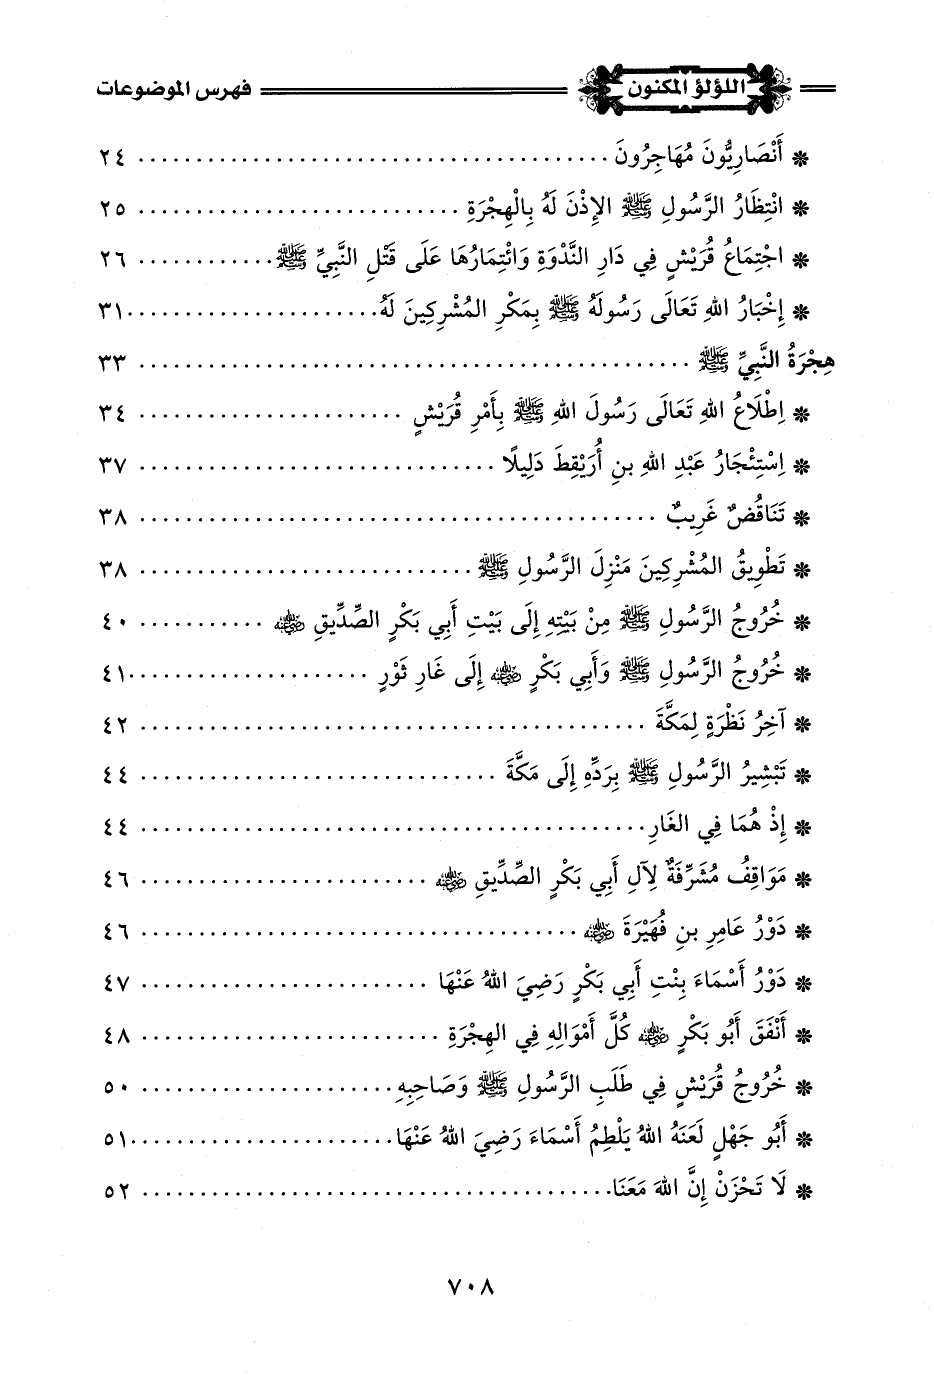 اللؤلؤ المكنون فهرس الموضوعات
* أَنْصَارِيُّونَ مُهَاجِرُونَ ........ ٢٤
* انْتِظَارُ الرَّسُولِ ﷺ الإِذْنَ لَهُ بِالْهِجْرَةِ ........ ٢٥
* اجْتِمَاعُ قُرَيْشٍ فِي دَارِ النَّدْوَةِ وَائْتِمَارُهَا عَلَى قَتْلِ النَّبِيِّ ﷺ ........ ٢٦
* إِخْبَارُ اللهِ تَعَالَى رَسُولَهُ ﷺ بِمَكْرِ المُشْرِكِينَ لَهُ ........ ٣١
هِجْرَةُ النَّبِيِّ ﷺ ........ ٣٣
* اِطْلَاعُ اللهِ تَعَالَى رَسُولَ اللهِ ﷺ بِأَمْرِ قُرَيْشٍ ........ ٣٤
* اِسْتِئْجَارُ عَبْدِ اللهِ بنِ أُرَيْقِطَ دَلِيلًا ........ ٣٧
* تَنَاقُضٌ غَرِيبٌ ........ ٣٨
* تَطْوِيقُ المُشْرِكِينَ مَنْزِلَ الرَّسُولِ ﷺ ........ ٣٨
* خُرُوجُ الرَّسُولِ ﷺ مِنْ بَيْتِهِ إِلَى بَيْتِ أَبِي بَكْرٍ الصِّدِّيقِ ﵁ ........ ٤٠
* خُرُوجُ الرَّسُولِ ﷺ وَأَبِي بَكْرٍ ﵁ إِلَى غَارِ ثَوْرٍ ........ ٤١
* آخِرُ نَظْرَةٍ لِمَكَّةَ ........ ٤٢
* تَبْشِيرُ الرَّسُولِ ﷺ بِرَدِّهِ إِلَى مَكَّةَ ........ ٤٤
* إِذْ هُمَا فِي الغَارِ ........ ٤٤
* مَوَاقِفُ مُشَرِّفَةٌ لِآلِ أَبِي بَكْرٍ الصِّدِّيقِ ﵁ ........ ٤٦
* دَوْرُ عَامِرِ بنِ فُهَيْرَةَ ﵁ ........ ٤٦
* دَوْرُ أَسْمَاءَ بِنْتِ أَبِي بَكْرٍ رَضِيَ اللهُ عَنْهَا ........ ٤٧
* أَنْفَقَ أَبُو بَكْرٍ ﵁ كُلَّ أَمْوَالِهِ فِي الهِجْرَةِ ........ ٤٨
* خُرُوجُ قُرَيْشٍ فِي طَلَبِ الرَّسُولِ ﷺ وَصَاحِبِهِ ........ ٥٠
* أَبُو جَهْلٍ لَعَنَهُ اللهُ يَلْطِمُ أَسْمَاءَ رَضِيَ اللهُ عَنْهَا ........ ٥١
* لَا تَحْزَنْ إِنَّ اللهَ مَعَنَا ........ ٥٢
٧٠٨